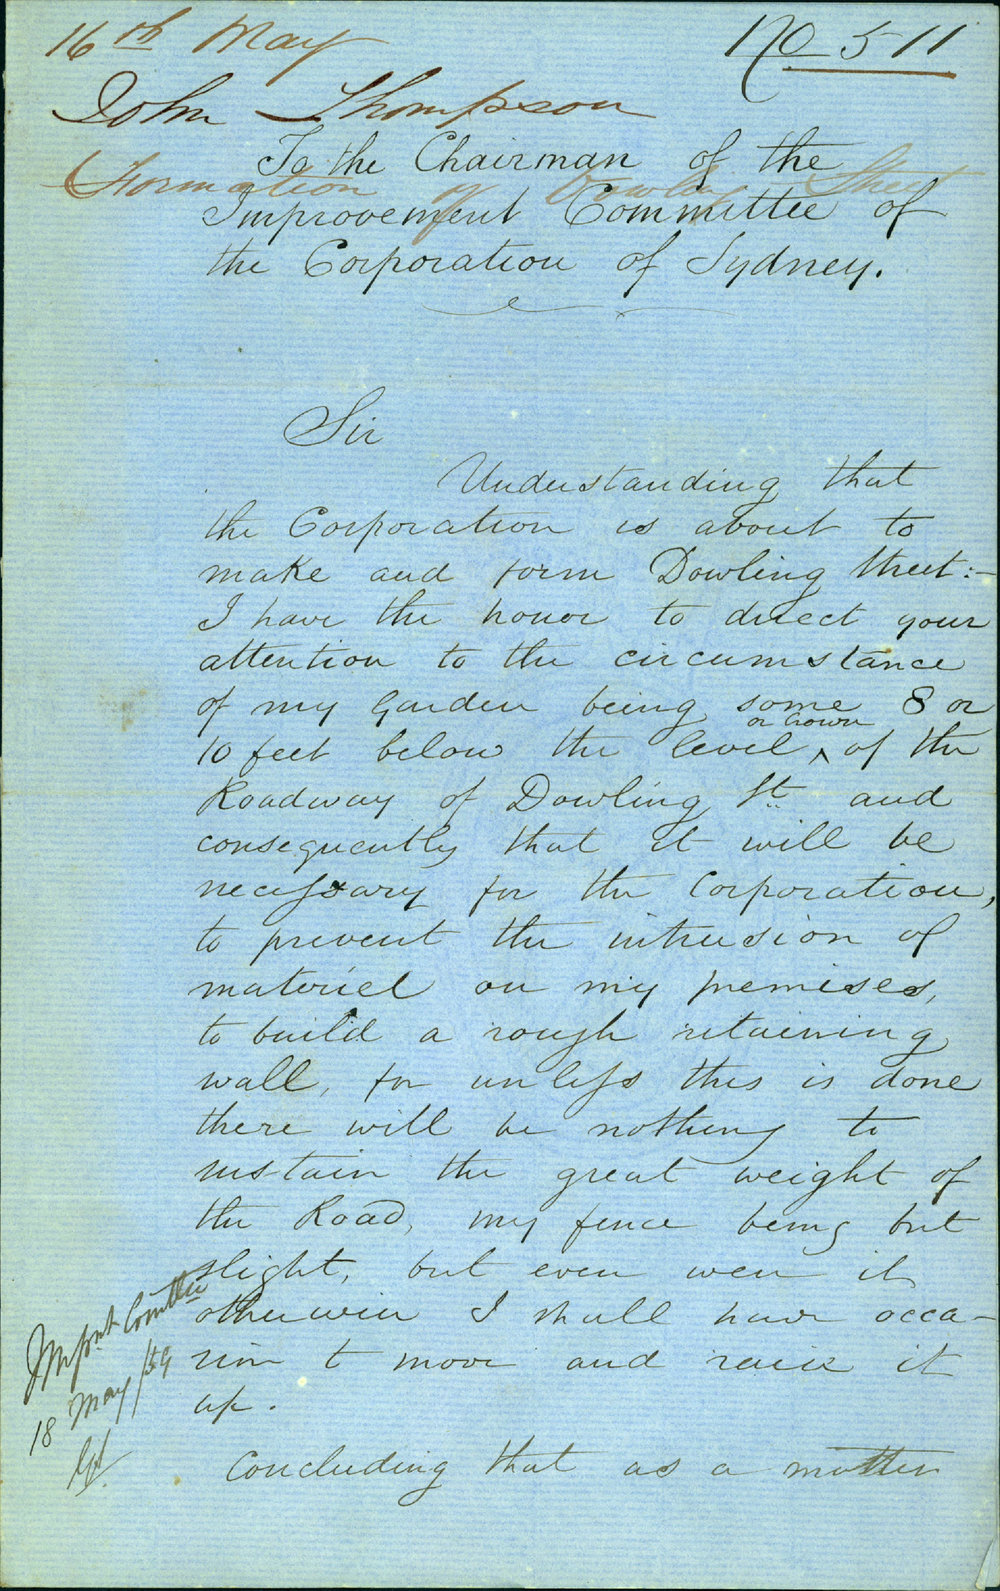 16th May
No 511
John Thompson
Formation of Dowling Street
To the Chairman of the
Improvement Committee of
the Corporation of Sydney.
Sir
Understanding that
the Corporation is about to
make and form Dowling Street:-
I have the honor to direct your
attention to the circumstance
of my Garden being some 8 or
or Crown
10 feet below the level ^ of the
Roadway of Dowling St and
consequently that it will be
necessary for the Corporation,
to prevent the intrusion of
materiel on my premises,
to build a rough retaining
wall, for unless this is done
there will be nothing to
sustain the great weight of
the Road, my fence being but
slight, but even were it
otherwise I shall have occa-
sion to move and raise it
up.
Concluding that as a matter
Impt Comttee
18 May /59